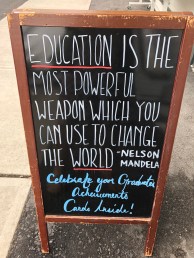 EDUCATION IS THE
MOST POWERFUL
WEAPON WHICH YOU
CAN USE TO CHANGE
THE WORLD -NELSON
MANDELA
Celebrate your Graduates
Achievements
Cards Inside!